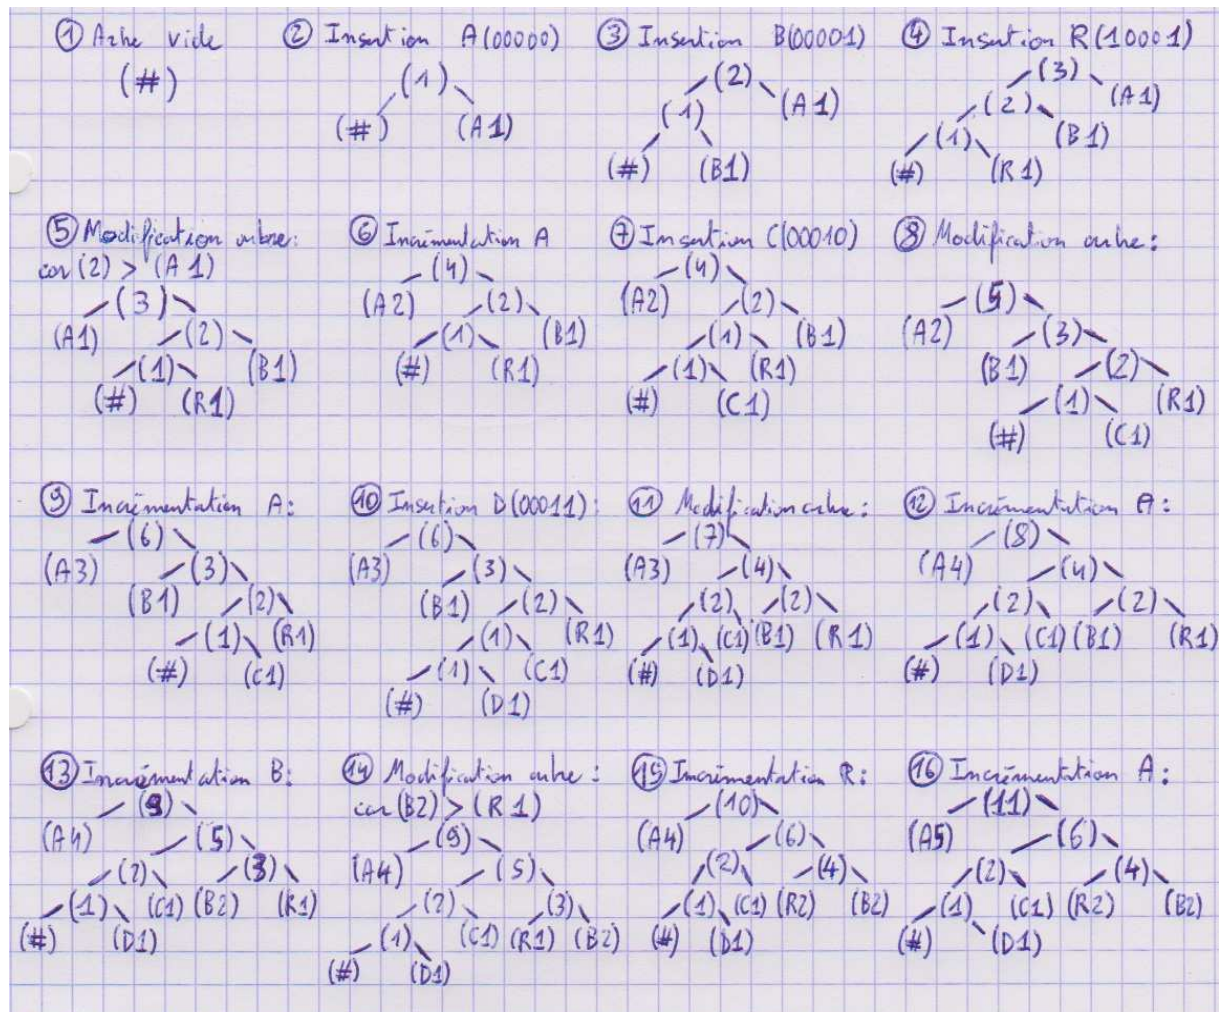 ① Arbre vide
(#)
② Insertion A(00000)
(1)
(#) (A1)
③ Insertion B(00001)
(2)
(1) (A1)
(#) (B1)
④ Insertion R(10001)
(3)
(2) (A1)
(1) (B1)
(#) (R1)
⑤ Modification arbre:
car (2) > (A1)
(3)
(A1) (2)
(1) (B1)
(#) (R1)
⑥ Incrémentation A
(4)
(A2) (2)
(1) (B1)
(#) (R1)
⑦ Insertion C(00010)
(4)
(A2) (2)
(1) (B1)
(1) (R1)
(#) (C1)
⑧ Modification arbre:
(5)
(A2) (3)
(B1) (2)
(1) (R1)
(#) (C1)
⑨ Incrémentation A:
(6)
(A3) (3)
(B1) (2)
(1) (R1)
(#) (C1)
⑩ Insertion D(00011):
(6)
(A3) (3)
(B1) (2)
(1) (R1)
(1) (C1)
(#) (D1)
⑪ Modification arbre:
(7)
(A3) (4)
(2) (2)
(1) (C1) (B1) (R1)
(#) (D1)
⑫ Incrémentation A:
(8)
(A4) (4)
(2) (2)
(1) (C1) (B1) (R1)
(#) (D1)
⑬ Incrémentation B:
(9)
(A4) (5)
(2) (3)
(1) (C1) (B2) (R1)
(#) (D1)
⑭ Modification arbre:
car (B2) > (R1)
(9)
(A4) (5)
(2) (3)
(1) (C1) (R1) (B2)
(#) (D1)
⑮ Incrémentation R:
(10)
(A4) (6)
(2) (4)
(1) (C1) (R2) (B2)
(#) (D1)
⑯ Incrémentation A:
(11)
(A5) (6)
(2) (4)
(1) (C1) (R2) (B2)
(#) (D1)